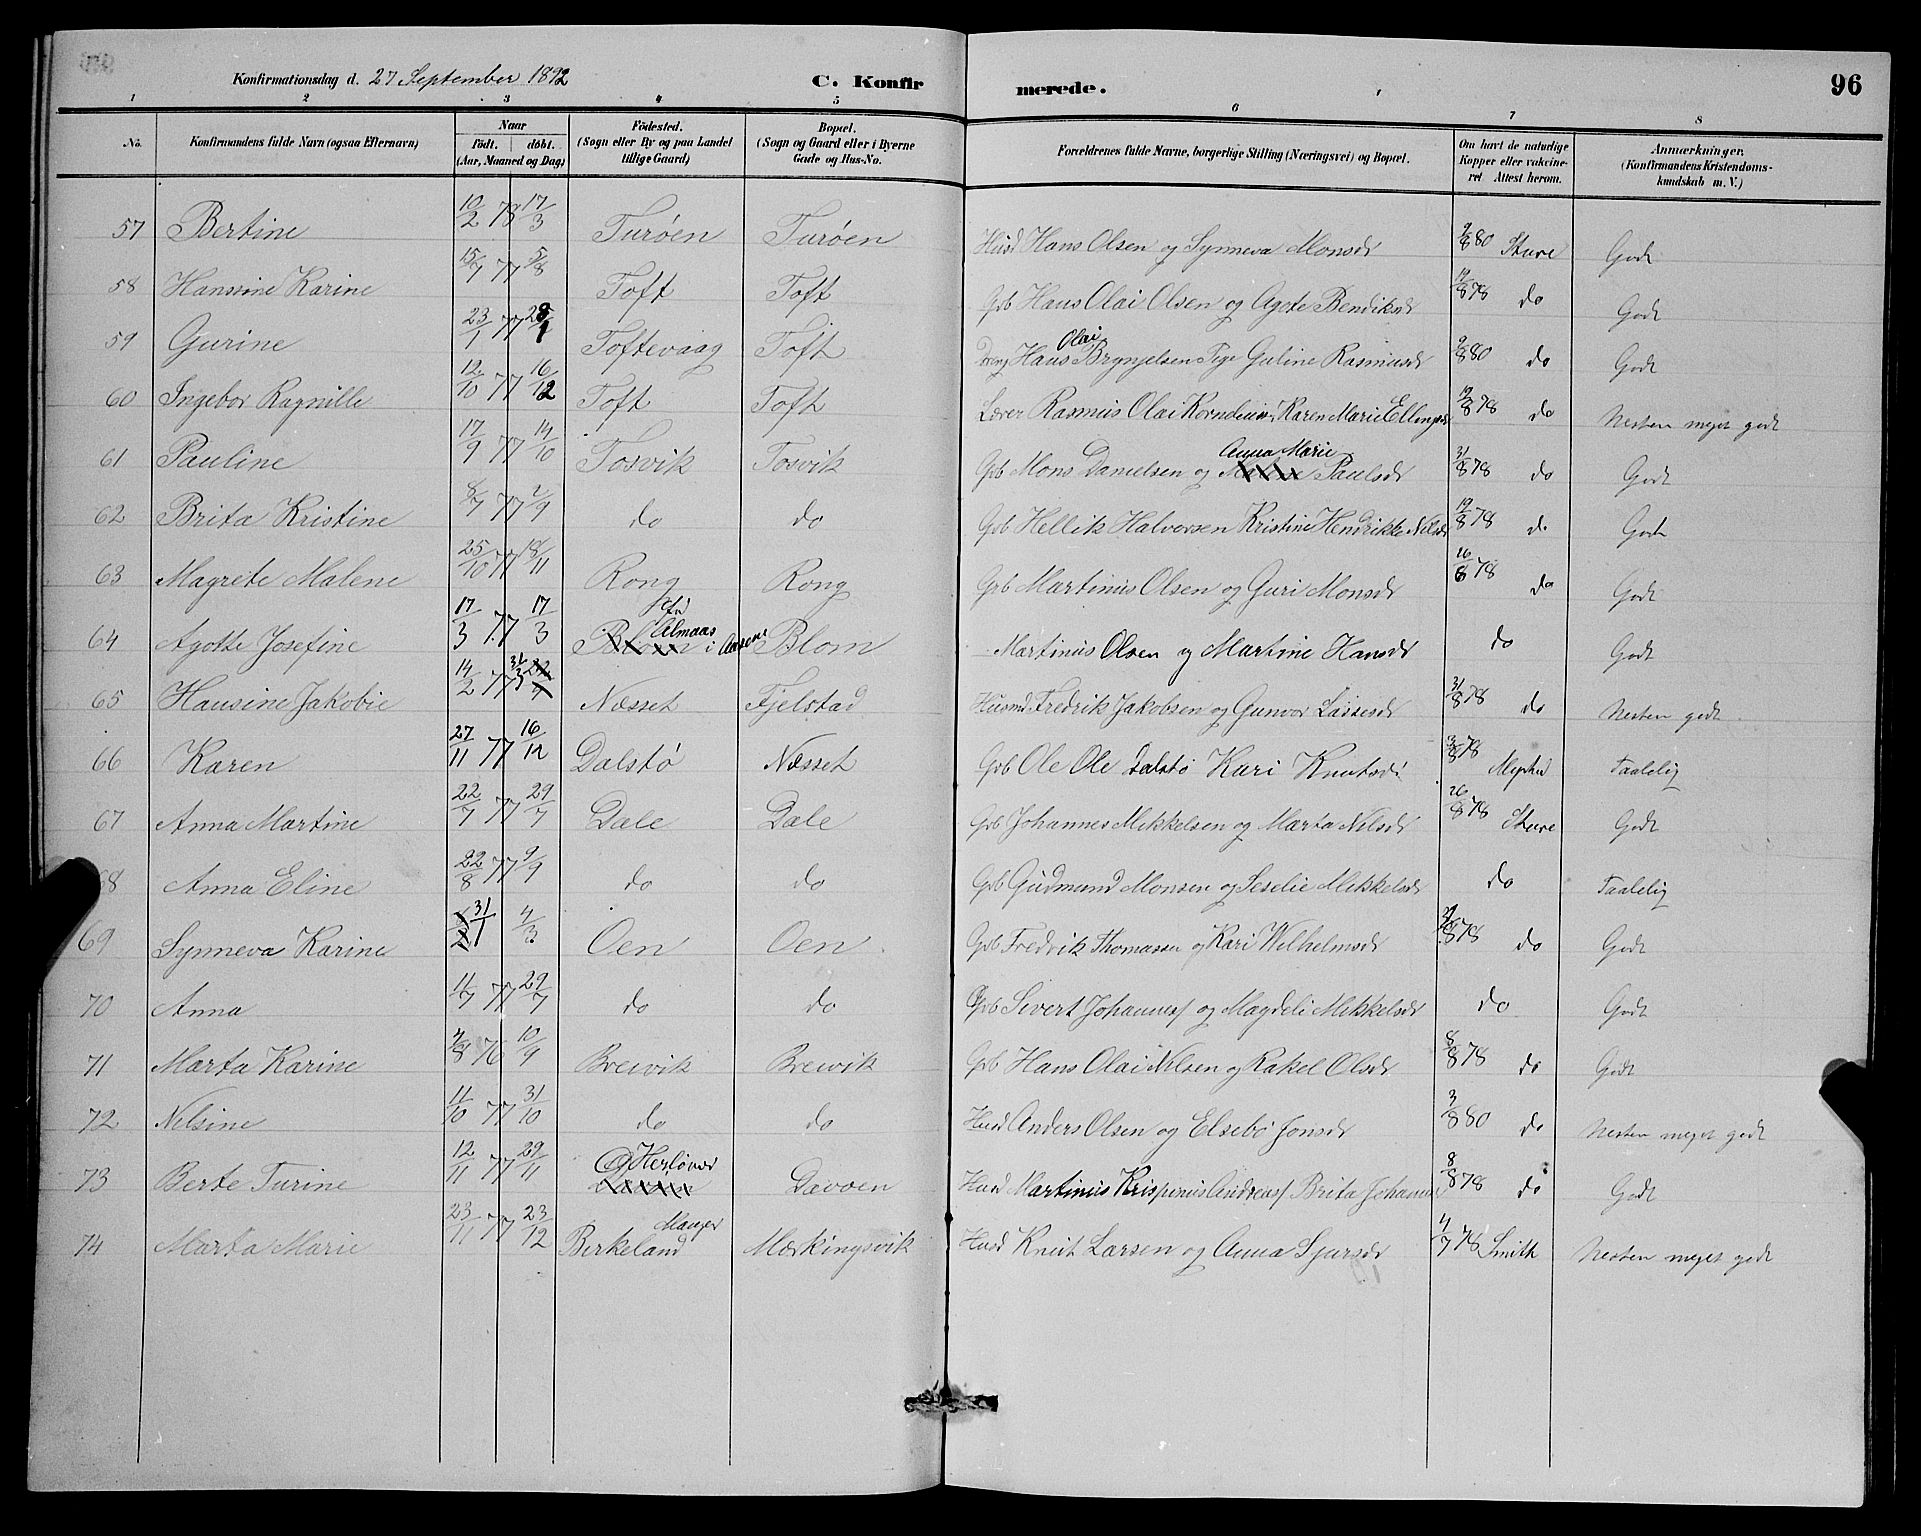 Konfirmationsdag d. 27 September 1892 C. Konfirmerede. 96
1 2 3 4 5 6 7 8
No. Konfirmandens fulde Navn (ogsaa Efternavn) Naar födt. döbt. (Aar, Maaned og Dag) Födested. (Sogn eller By og paa Landet tillige Gaard) Bopæl. (Sogn og Gaard eller i Byerne Gade og Hus-No. Forældrenes fulde Navne, borgerlige Stilling (Næringsvei) og Bopæl. Om havt de naturlige Kopper eller vakcineret Attest herom. Anmærkninger. (Konfirmandens Kristendomskundskab m. V.)
57 Bertine 10/2 78 17/3 Turöen Turöen Husd Hans Olsen og Synneva Monsdr 9/8 80 Sture Godt
58 Hansine Karine 15/7 77 5/8 Toft Toft Grb Hans Olai Olsen og Agote Bendiksdr 19/8 78 do Godt
59 Gurine 23/1 77 28/1 Toftevaag Toft Dreng Hans Olai Brynjelsen Pige Guline Rasmusdr 9/8 80 do Godt
60 Ingebor Ragnille 12/10 77 16/12 Toft Toft Lærer Rasmus Olai Karen Marie Ellingsdr 19/8 78 do Nesten meget godt
61 Pauline 17/9 77 14/10 Tosvik Tosvik Grb Mons Danielsen og Anna Marie Paulsdr 31/8 78 do Godt
62 Brita Kristine 8/7 77 2/9 do do Grb Hellik Halversen Kristine Hendrikke Nilsdr 19/8 78 do Godt
63 Magrete Malene 25/10 77 18/11 Rong Rong Grb Martinus Olsen og Guri Monsdr 16/8 78 do Godt
64 Agotte Josefine 17/3 77 17/3 Almaas i Aasene Blom Martinus Olsen og Martine Hansdr do Godt
65 Hansine Jakobie 14/2 77 31/3 Næsset Fjelstad Husmd Fredrik Jakobsen og Gunvor Lassesdr 31/8 78 do Nesten godt
66 Karen 27/11 77 16/12 Dalstø Næsset Grb Ole Ole Dalstø Kari Knutsdr 3/8 78 Taalelig
67 Anna Martine 22/7 77 29/7 Dale Dale Grb Johannes Mikkelsen og Marta Nilsdr 26/8 78 Sture Godt
68 Anna Eline 22/8 77 9/9 do do Grb Gudmund Monsen og Seselie Mikkelsdr do Taalelig
69 Synneva Karine 31/1 4/3 Oen Oen Grb Fredrik Thomassen og Kari Wilhelmsdr 8 78 do Godt
70 Anna 11/7 77 29/7 do do Grb Sivert Johannes/ og Magdeli Mikkelsdr do Godt
71 Marta Karine 4/8 76 10/9 Breivik Breivik Grb Hans Olai Nilsen og Rakel Olsdr 8/8 78 do Godt
72 Nilsine 11/10 77 31/10 do do Husd Anders Olsen og Elsebö Jonsdr 3/8 80 do Nesten meget godt
73 Berte Turine 12/11 77 29/11 Herløvær Davöen Husd Martinus Krispinus Andreas/ Brita Johannes 8/8 78 do Godt
74 Marta Marie 23/11 77 23/12 Birkeland Manger Mærkingsvik Husd Knut Larsen og Anna Sjursdr 4/7 78 Smith Nesten meget godt